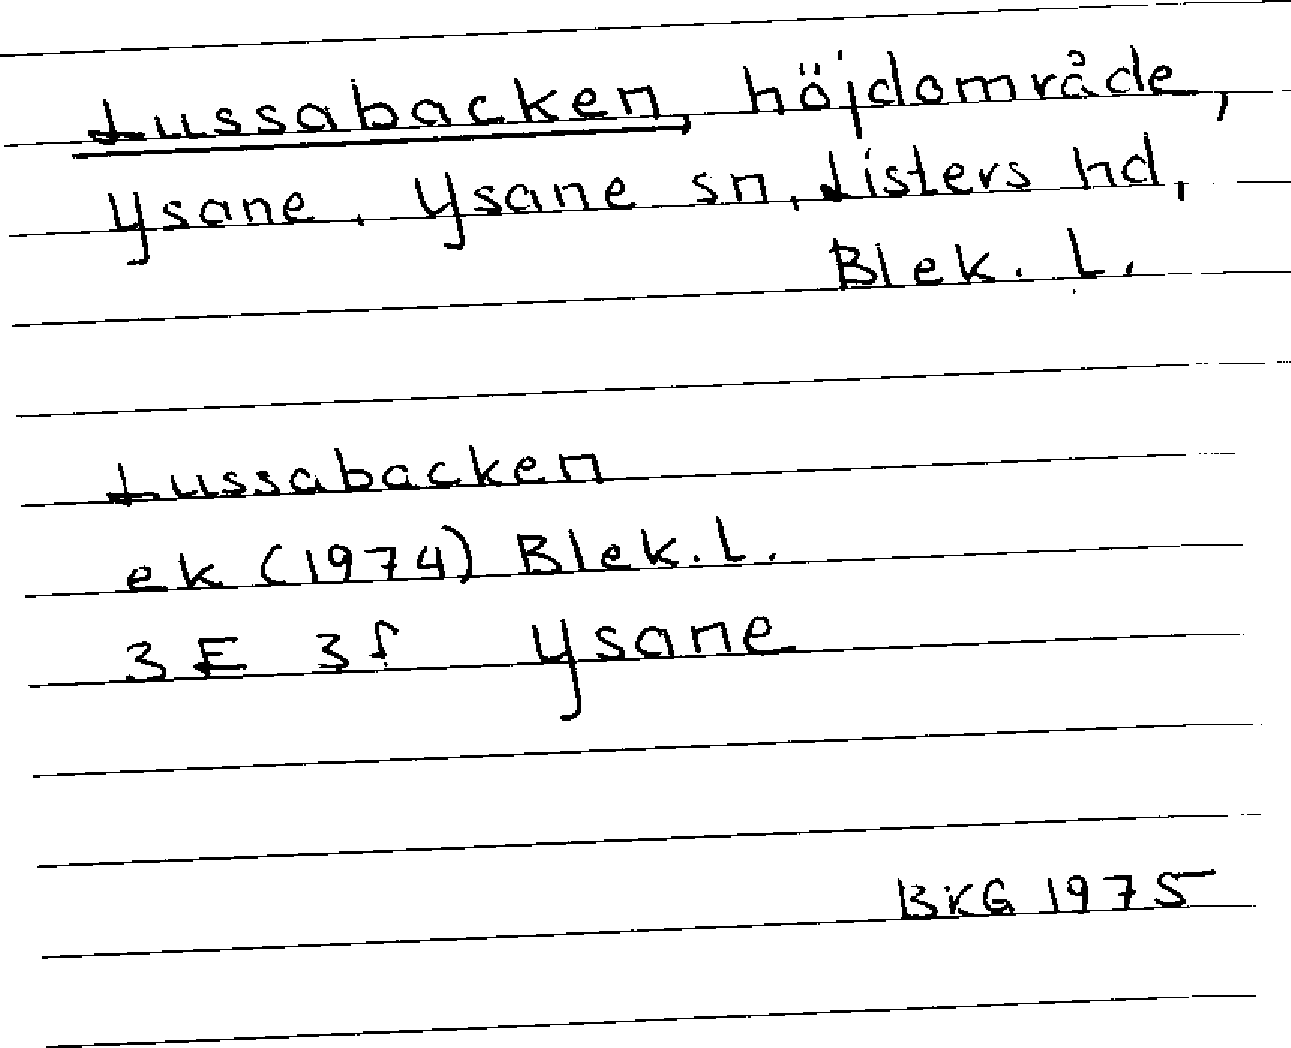 Lussabacken, höjdområde,
Ysane, Ysane sn, Listers hd,
Blek. l.
Lussabacken
ek (1974) Blek. l.
3E 3f Ysane
BKG 1975